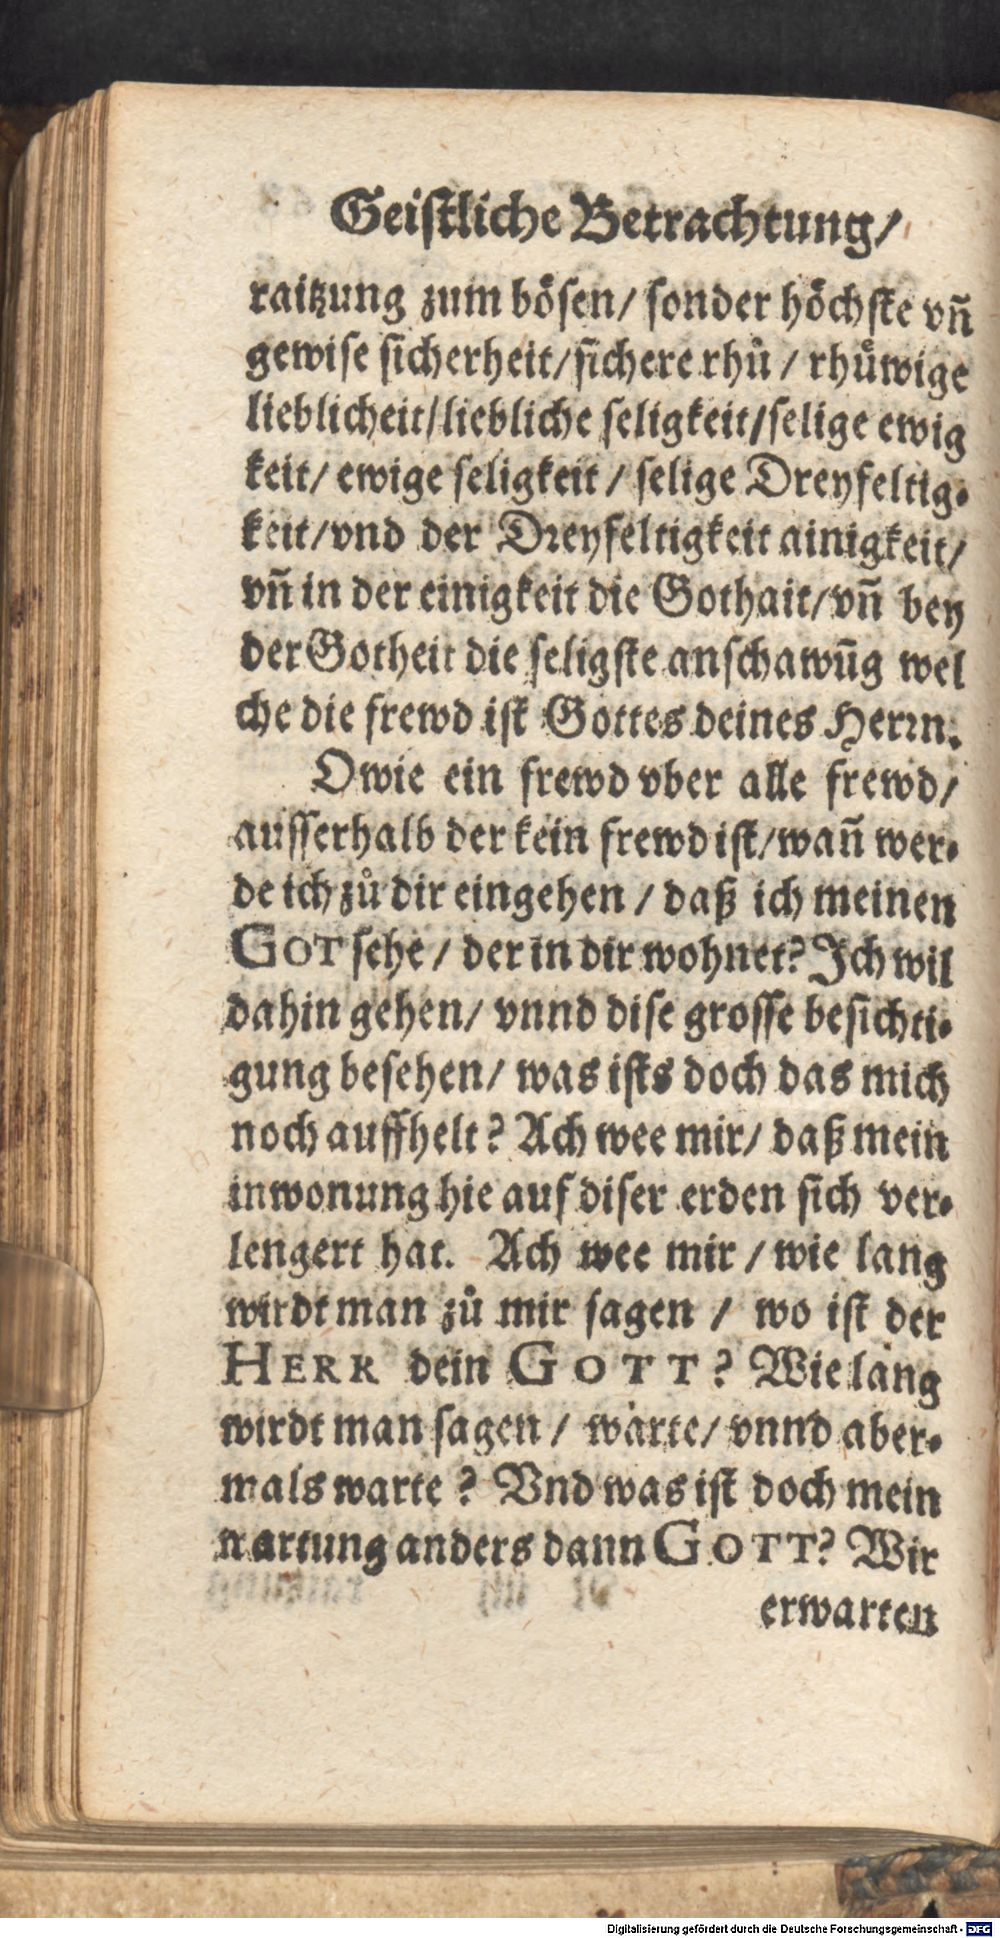 Geistliche Betrachtung/
raitzung zum bösen/ sonder höchste vñ
gewise sicherheit/sichere rhů / rhůwige
lieblicheit/liebliche seligkeit/selige ewig
keit/ ewige seligkeit / selige Dreyfeltig-
keit/vnd der Dreyfeltigkeit ainigkeit/
vñ in der einigkeit die Gothait/vñ bey
der Gotheit die seligste anschawũg wel
che die frewd ist Gottes deines Herrn.
O wie ein frewd vber alle frewd/
ausserhalb der kein frewd ist/wañ wer-
de ich zů dir eingehen / daß ich meinen
GOT sehe / der in dir wohnet? Ich wil
dahin gehen/ vnnd dise grosse besichti-
gung besehen/ was ists doch das mich
noch auffhelt? Ach wee mir/ daß mein
inwonung hie auf diser erden sich ver-
lengert hat. Ach wee mir / wie lang
wirdt man zů mir sagen / wo ist der
HERR dein GOTT? Wie lang
wirdt man sagen / warte/ vnnd aber-
mals warte ? Vnd was ist doch mein
wartung anders dann GOTT? Wir
erwarten
Digitalisierung gefördert durch die Deutsche Forschungsgemeinschaft - DFG